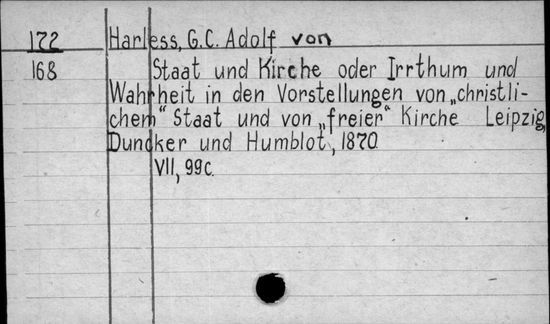 172 Harless, G.C. Adolf von
168 Staat und Kirche oder Irrthum und
Wahrheit in den Vorstellungen von „christli-
chem“ Staat und von „freier“ Kirche Leipzig,
Duncker und Humblot, 1870
VII, 99c.